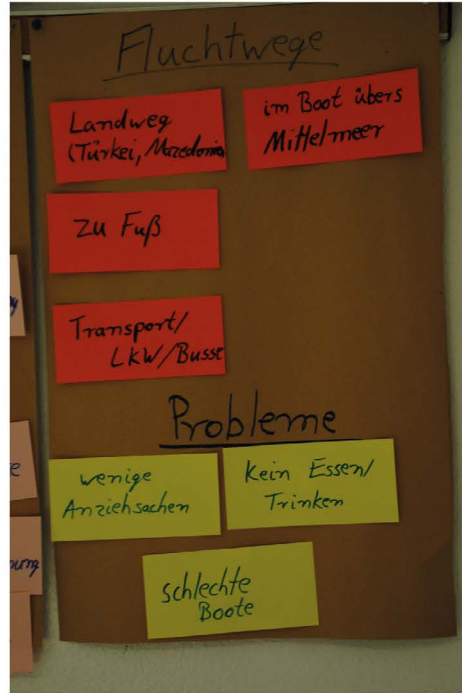 Fluchtwege
Landweg
(Türkei, Mazedonien
im Boot übers
Mittelmeer
zu Fuß
Transport/
LKW/Busse
Probleme
wenige
Anziehsachen
Kein Essen/
Trinken
schlechte
Boote